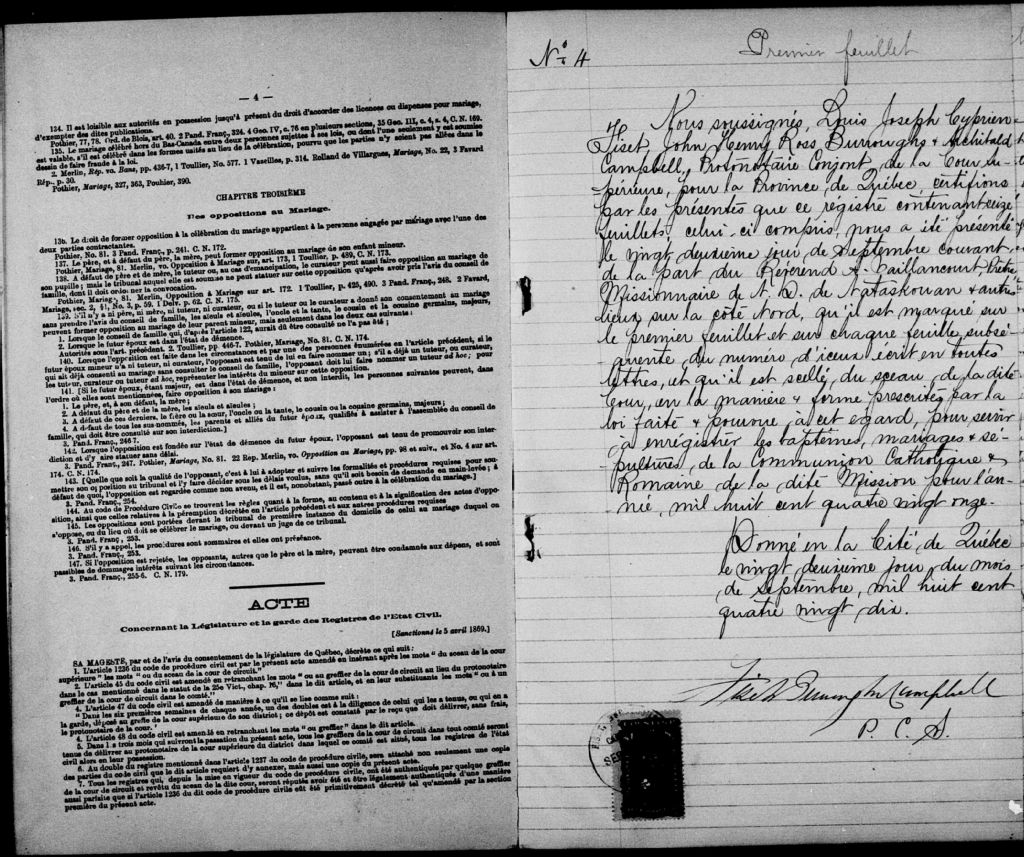 — 4 —
134. Il est loisible aux autorités en possession jusqu'à présent du droit d'accorder des licences ou dispenses pour mariage,
d'exempter des dites publications.
Pothier, 77, 78. Ord. de Blois, art. 40. 2 Pand. Franç., 324. 4 Geo. IV, c. 76 en plusieurs sections, 35 Geo. III, c. 4, s. 4, C. N. 169.
135. Le mariage célébré hors du Bas-Canada entre deux personnes sujettes à ses lois, ou dont l'une seulement y est soumise
est valable, s'il est célébré dans les formes usitées au lieu de la célébration, pourvu que les parties n'y soient pas allées dans le
dessin de faire fraude à la loi.
2. Merlin, Rép. vo. Bans, pp. 436-7, 1 Toullier, No. 577. 1 Vazeilles, p. 314. Rolland de Villargues, Mariage, No. 22, 3 Favard
Rép., p. 30.
Pothier, Mariage, 327, 363, Pouhier, 390.
CHAPITRE TROISIÈME
Des oppositions au Mariage.
136. Le droit de former opposition à la célébration du mariage appartient à la personne engagée par mariage avec l'une des
deux parties contractantes.
Pothier, No. 81. 3 Pand. Franç., p. 241. C. N. 172.
137. Le père, et à défaut du père, la mère, peut former opposition au mariage de son enfant mineur.
Pothier, Mariage, 81. Merlin, vo. Opposition à Mariage sur art. 173, 1 Toullier, p. 489, C. N. 173.
138. A défaut de père et de mère, le tuteur ou, au cas d'émancipation, le curateur peut aussi faire opposition au mariage de
son pupille; mais le tribunal auquel elle est soumise ne peut statuer sur cette opposition qu'après avoir pris l'avis du conseil de
famille, dont il doit ordonner la convocation.
Pothier, Mariage, 81. Merlin, Opposition à Mariage sur art. 172. 1 Toullier, p. 425, 490. 3 Pand. Franç., 248. 2 Favard,
Mariage, sec. 2, §1, No. 3, p. 59. 1 Delv. p. 62. C. N. 175.
139. S'il n'y a ni père, ni mère, ni tuteur, ni curateur, ou si le tuteur ou le curateur a donné son consentement au mariage
sans prendre l'avis du conseil de famille, les aïeuls et aïeules, l'oncle et la tante, le cousin et la cousine germains, majeurs,
peuvent former opposition au mariage de leur parent mineur, mais seulement dans les deux cas suivants:
1. Lorsque le conseil de famille qui, d'après l'article 122, aurait dû être consulté ne l'a pas été;
2. Lorsque le futur époux est dans l'état de démence.
Autorités sous l'art. précédent. 2. Toullier, pp. 446-7. Pothier, Mariage, No. 81. C. N. 174.
140. Lorsque l'opposition est faite dans les circonstances et par une des personnes énumérées en l'article précédent, si le
futur époux mineur n'a ni tuteur, ni curateur, l'opposant est tenu de lui en faire nommer un; s'il a déjà un tuteur, ou curateur,
qui ait déjà consenti au mariage sans consulter le conseil de famille, l'opposant doit lui faire nommer un tuteur ad hoc; pour
les tuteur, curateur ou tuteur ad hoc, représenter les intérêts du mineur sur cette opposition.
141. [Si le futur époux, étant majeur, est dans l'état de démence, et non interdit, les personnes suivantes peuvent, dans
l'ordre où elles sont mentionnées, faire opposition à son mariage:
1. Le père, et, à son défaut, la mère;
2. A défaut du père et de la mère, les aïeuls et aïeules;
3. A défaut de ces derniers, le frère ou la sœur, l'oncle ou la tante, le cousin ou la cousine germains, majeurs;
4. A défaut de tous les sus-nommés, les parents et alliés du futur époux, qualifiés à assister à l'assemblée du conseil de
famille, qui doit être consulté sur son interdiction.]
3. Pand. Franç., 246 7.
142. Lorsque l'opposition est fondée sur l'état de démence du futur époux, l'opposant est tenu de promouvoir son inter-
diction et d'y faire statuer sans délai.
3. Pand. Franç., 247. Pothier, Mariage, No. 81. 22 Rép. Merlin, vo. Opposition au Mariage, pp. 98 et suiv., et No. 4 sur art.
174. C. N. 174.
143. [Quelque soit la qualité de l'opposant, c'est à lui à adopter et suivre les formalités et procédures requises pour sou-
mettre son opposition au tribunal et l'y faire décider sous les délais voulus, sans qu'il soit besoin de demande en main-levée; à
défaut de quoi, l'opposition est regardée comme non avenue, et il est, nonobstant, passé outre à la célébration du mariage.]
3. Pand. Franç., 254.
144. Au Code de Procédure Civile se trouvent les règles quant à la forme, au contenu et à la signification des actes d'oppo-
sition, ainsi que celles relatives à la péremption décrétée en l'article précédent et aux autres procédures requises
145. Les oppositions sont portées devant le tribunal de première instance du domicile de celui au mariage duquel on
s'oppose, ou du lieu où doit se célébrer le mariage, ou devant un juge de ce tribunal.
3. Pand. Franç, 253.
146. S'il y a appel, les procédures sont sommaires et elles ont préséance.
3. Pand. Franç., 253.
147. Si l'opposition est rejetée, les opposants, autres que le père et la mère, peuvent être condamnés aux dépens, et sont
passibles de dommages intérêts suivant les circonstances.
3. Pand. Franç., 255-6. C. N. 179.
ACTE
Concernant la Législature et la garde des Registres de l'Etat Civil.
[Sanctionné le 5 avril 1869.]
SA MAGESTE, par et de l'avis du consentement de la législature de Québec, décrète ce qui suit:
1. L'article 1236 du code de procédure civil est par le présent acte amendé en insérant après les mots " du sceau de la cour
supérieure " les mots " ou du sceau de la cour de circuit."
2. L'article 45 du code civil est amendé en retranchant les mots " ou au greffier de la cour de circuit au lieu du protonotaire
dans le cas mentionné dans le statut de la 25e Vict., chap. 16," dans le dit article, et en leur substituant les mots " ou à un
greffier de la cour de circuit dans le comté."
4. L'article 47 du code civil est amendé de manière à ce qu'il se lise comme suit:
" Dans les six premières semaines de chaque année, un des doubles est à la diligence de celui qui les a tenus, ou qui en a
la garde, déposé au greffe de la cour supérieure de son district; ce dépôt est constaté par le reçu que doit délivrer, sans frais,
le protonotaire de la cour."
4. L'article 48 du code civil est amendé en retranchant les mots " ou greffier " dans le dit article.
5. Dans les trois mois qui suivront la passation du présent acte, tous les greffiers de la cour de circuit dans tout comté seront
tenus de délivrer au protonotaire de la cour supérieure du district dans lequel ce comté est situé, tous les registres de l'état
civil alors en leur possession.
6. Au double du registre mentionné dans l'article 1237 du code de procédure civile, sera attaché non seulement une copie
des parties du code civil que le dit article requiert d'y annexer, mais aussi une copie du présent acte.
7. Tous les registres qui, depuis la mise en vigueur du code de procédure civile, ont été authentiqués par quelque greffier
de la cour de circuit et revêtu du sceau de la dite cour, seront réputés avoir été et être légalement authentiqués d'une manière
aussi parfaite que si l'article 1236 du dit code de procédure civile eût été primitivement décrété tel qu'amendé par la section
première du présent acte.
No. 4
Premier feuillet
Nous soussignés, Louis Joseph Cyprien-
Fiset, John Henry Ross Burroughs & Archibald
Campbell, Protonotaire Conjoint de la Cour Su-
périeure, pour la Province de Québec, certifions
par les présentes que ce registre contenant seize
feuillets, celui-ci compris, nous a été présenté
le vingt deuxième jour de Septembre courant
de la part du Révérend A. Vaillancourt, Prêtre
Missionnaire de N. D. de Nataskouan & autres
lieux sur la côté Nord, qu'il est marqué sur
le premier feuillet et sur chaque feuille subsé-
quente, du numéro d'iceux écrit en toutes
lettres, et qu'il est scellé, du sceau, de la dite
Cour, en la manière & forme prescrites par la
loi faite & pourvue à cet egard, pour servir
à enregistrer les baptêmes, mariages & sé-
pultures, de la Communion Catholique &
Romaine de la dite Mission pour l'an-
née, mil huit cent quatre vingt onze.
Donné en la Cité, de Québec
le vingt deuxième jour, du mois
de Septembre, mil huit cent
quatre vingt dix.
Fiset Burroughs Campbell
P. C. S.